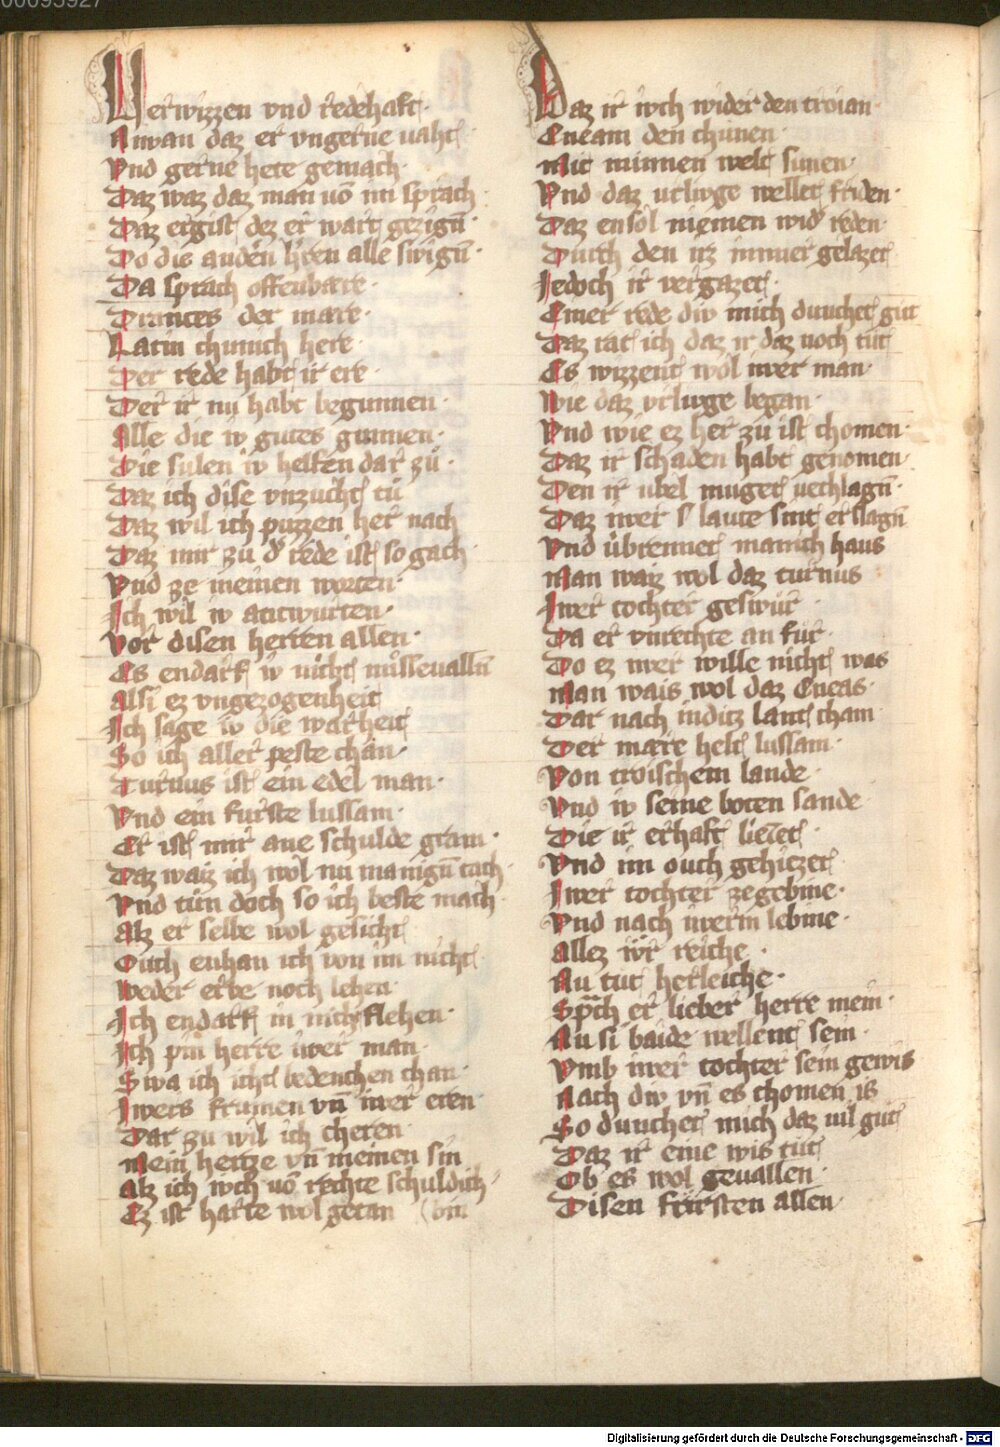 00095927
Verwizzen vnd redehaft·
Anwan daz er vngerne vaht
Vnd gerne hete gemach·
Daz waz daz man vō im sprach·
Daz ergist dez er wart gezign̄·
Do die anděn hren alle swign̄·
Da sprach offenbære·
Drances der mare·
Latin chunich here·
Der rede habt ir ere·
Der ir nu habt begunnen·
Alle die iv gutes gunnen·
Die sulen iv helfen dar zů·
Daz ich dise vnzucht tů
Daz wil ich puzzen her nach
Daz mir zu d' rede ist so gach·
Vnd ze meinen worten·
Ich wil iv antwurten·
Vor disen herren allen·
Es endarf iv nicht missevalln̄
Alsi ez vngezogenheit
Ich sage iv die warheit
So ich aller peste chan·
Turnus ist ein edel man·
Vnd ein furste lussam·
Er ist mir ane schulde gram·
Daz waiz ich wol nu manign̄ tach·
Vnd tůn doch so ich beste mach·
Alz er selbe wol gesicht
Ouch enhan ich von im nicht
Weder erbe noch lehen·
Ich endarf in nicht flehen·
Ich pin herre iwer man·
Swa ich icht bedenchen chan·
Iwers frumen vn̄ iwer eren
Dar zu wil ich cheren
Mein hertze vn̄ meinen sin
Alz ich iwch vō rechte schuldich·
Ez ist harte wol getan (bin
Daz ir iwch wider den troian·
Eneam den chunen·
Mit minnen welt sunen·
Vnd daz vrliwge wellet friden·
Daz ensol niemen wid' reden·
Durch den irz immer gelazet
Iedoch ir vergazet·
Einer rede div mich dunchet gůt
Daz rat ich daz ir daz noch tůt
Es wizzent wol iwer man·
Wie daz vrliwge began·
Vnd wie ez her zů ist chomen·
Daz ir schaden habt genomen·
Den ir ubel muget vechlagn̄·
Daz iwer s' laute sint erslagn̄
Vnd ůbrennet manich haus
Man waiz wol daz turnus
Iwer tochter geswůr·
Da er vnrechte an fůr·
Do ez iwer wille nicht was
Man wais wol daz Eneas·
Dar nach inditz lant cham
Der mære helt lussam·
Von troischem lande·
Vnd iv seine boten sande
Die ir erhaft liezet·
Vnd im ouch gehiezet
Iwer tochter zegebine·
Vnd nach iwerm lebine·
Allez iwr reiche·
Nu tut herleiche·
Sprach er lieber herre mein·
Nu si baide wellent sein·
Vmb iwer tochter sein gewis
Nach div vn̄ es chomen is
So dunchet mich daz vil gůt
Daz ir eine wis tůt
Ob es wol geuallen·
Disen fůrsten allen·
Digitalisierung gefördert durch die Deutsche Forschungsgemeinschaft - DFG